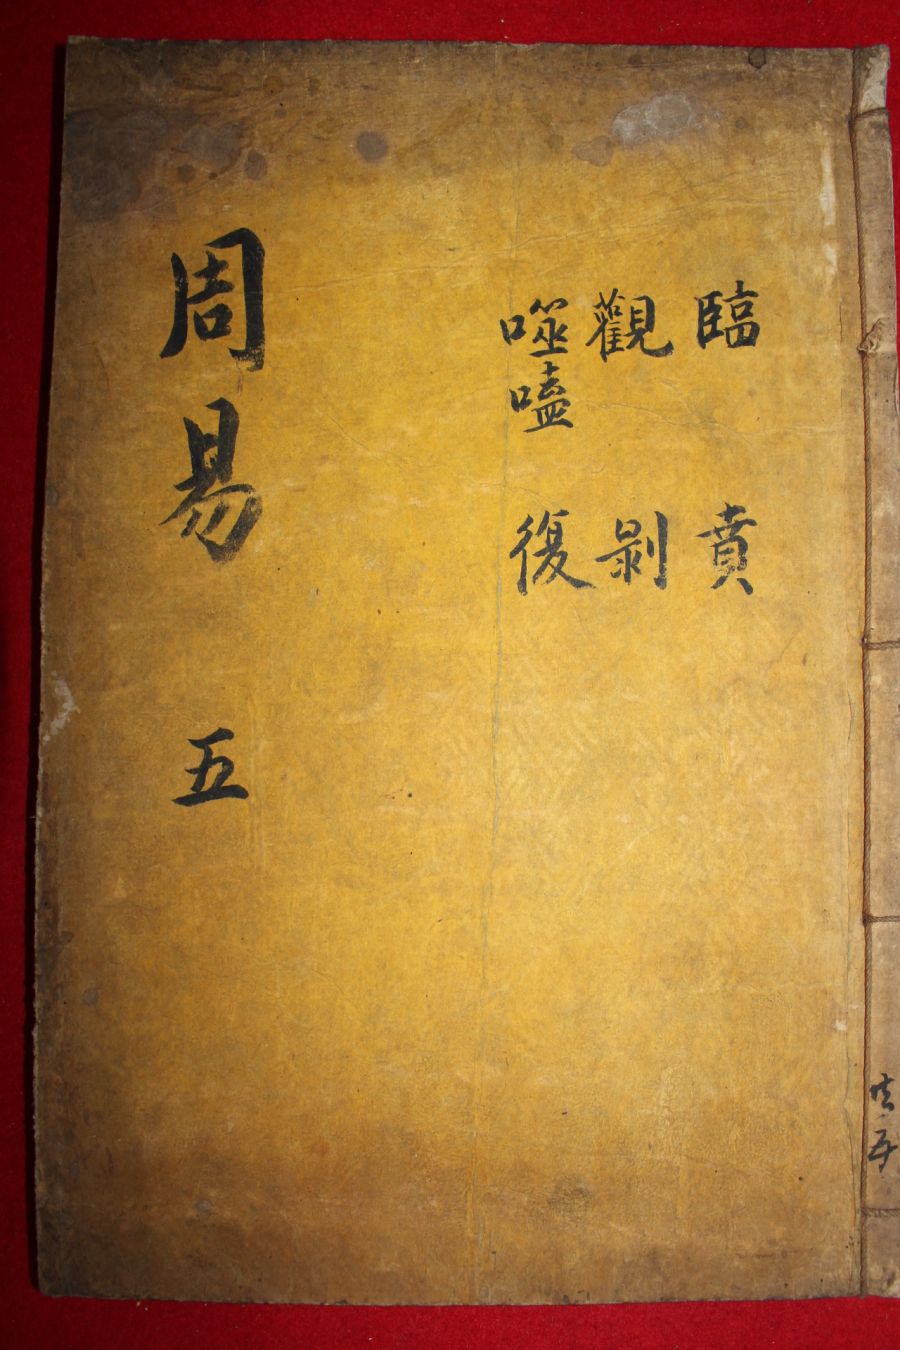 周易 五
臨 賁
觀 剝
噬嗑 復
共五